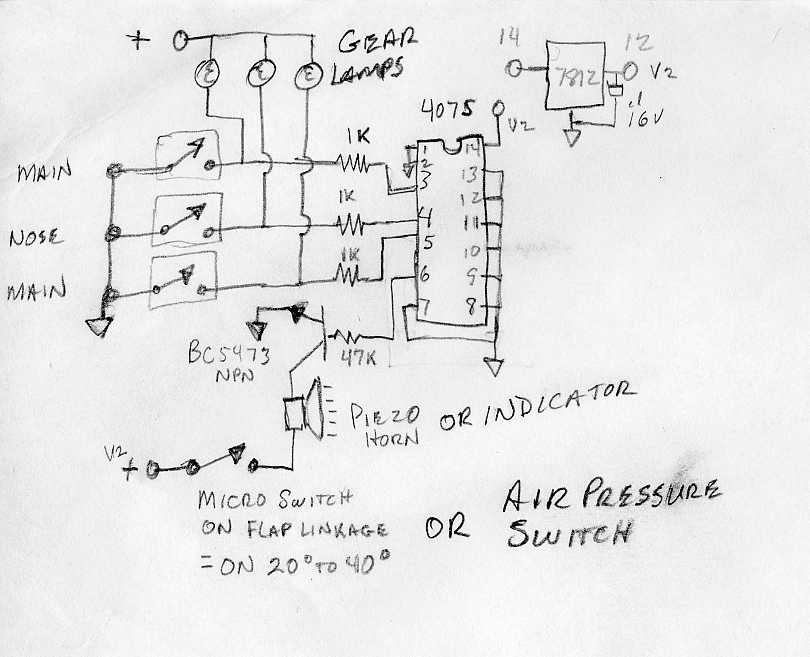 +
GEAR
LAMPS
14
7812
12
V2
.1
16V
4075
V2
MAIN
1K
NOSE
1K
MAIN
1K
1
2
3
4
5
6
7
14
13
12
11
10
9
8
BC5473
NPN
47K
PIEZO
HORN
OR INDICATOR
V2
+
MICRO SWITCH
ON FLAP LINKAGE
= ON 20° TO 40°
OR
AIR PRESSURE
SWITCH